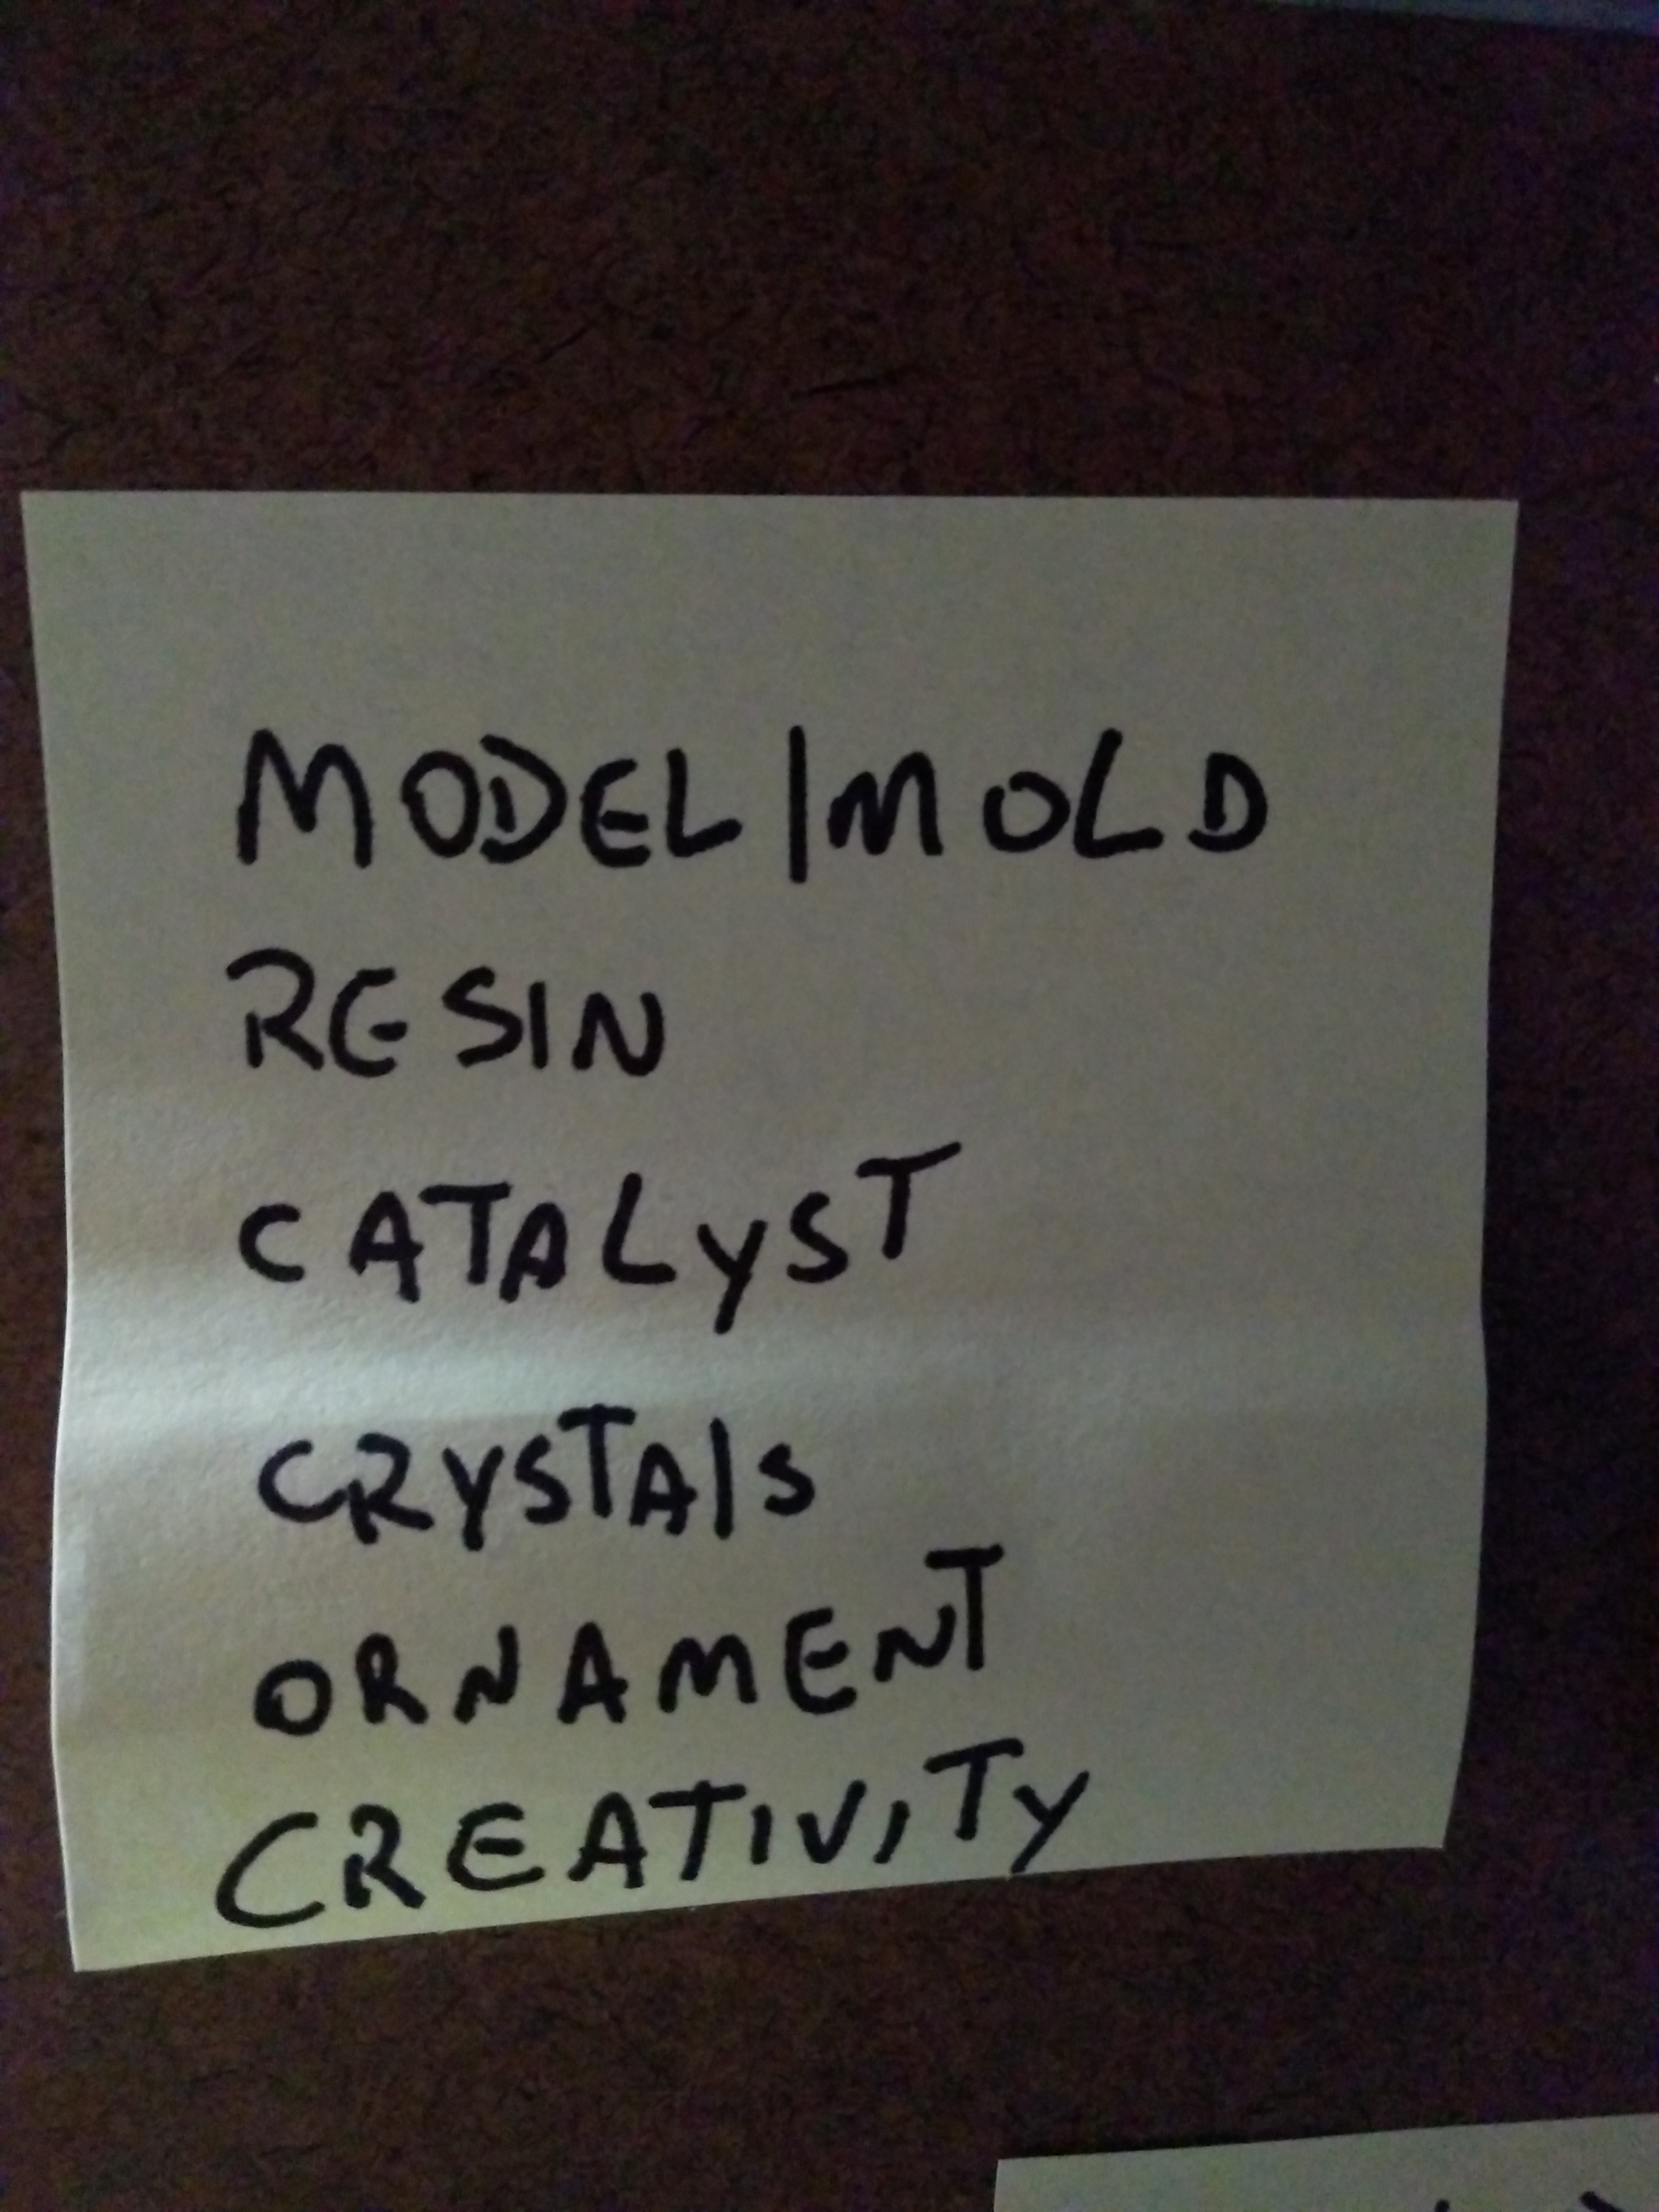 MODEL/MOLD
RESIN
CATALYST
CRYSTAlS
ORNAMENT
CREATIVITY